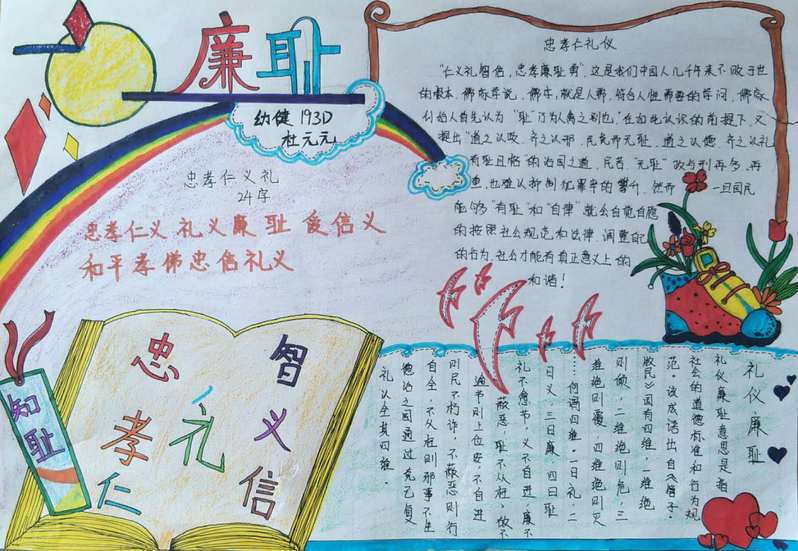 廉耻
幼健193D
杜元元
忠孝仁义礼
24字
忠孝仁义 礼义廉耻 爱信义
和平孝佛忠信礼义
忠孝仁礼仪
"仁义礼智信,忠孝廉耻勇",这是我们中国人几千年来不败于世
的根本,儒家学说,儒生,就是人需,符合人性需要的学问,儒家
创始人首先认为"耻"乃为人禽之别也",在如此认识的前提下,又
提出"道之以政,齐之以刑,民免而无耻,道之以德,齐之以礼
有耻且格"的治国之道,民若"无耻"政与刑再多,再
重,也难以抑制犯罪率的攀升,然而,一旦国民
能够"有耻"和"自律"就会自觉自愿
的按照社会规范和法律,调整自己
的行为,社会才能有真正意义上的
和谐!
知耻
忠
孝
仁
礼
智
义
信
礼仪廉耻
礼仪廉耻意思是指
社会的道德标准和行为规
范,该成语出自《管子·
牧民》国有四维,一维绝
则倾,二维绝则危,三
维绝则覆,四维绝则灭
何谓四维,一曰礼,二
曰义,三曰廉,四曰耻
礼不愈节,义不自进,廉不
蔽恶,耻不从枉,故不
逾节则上位安,不自进
则民不朽诈,不蔽恶则行
自全,不从枉则邪事不生
德治之国通过克己复
礼以全其四维。